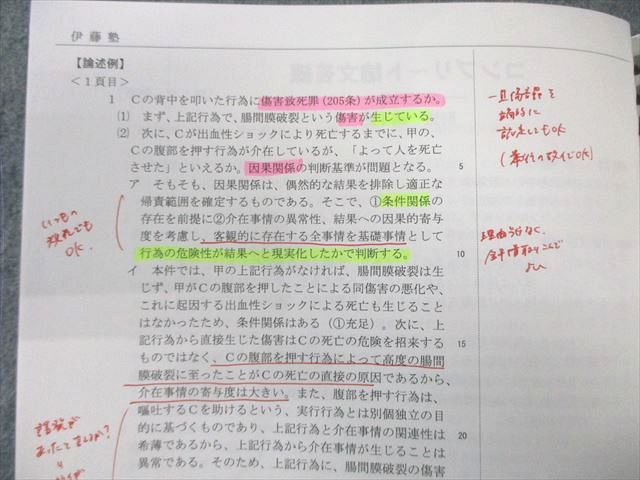 伊藤塾
コンプリート論文答練
【論述例】
<1頁目>
1 Cの背中を叩いた行為に傷害致死罪(205条)が成立するか。
(1) まず、上記行為で、腸間膜破裂という傷害が生じている。
(2) 次に、Cが出血性ショックにより死亡するまでに、甲の
Cの腹部を押す行為が介在しているが、「よって人を死亡
させた」といえるか。因果関係の判断基準が問題となる。 5
ア そもそも、因果関係は、偶然的な結果を排除し適正な
帰責範囲を確定するものである。そこで、①条件関係の
存在を前提に②介在事情の異常性、結果への因果的寄与
度を考慮し、客観的に存在する全事情を基礎事情として
行為の危険性が結果へと現実化したかで判断する。 10
イ 本件では、甲の上記行為がなければ、腸間膜破裂は生
じず、甲がCの腹部を押したことによる同傷害の悪化や、
これに起因する出血性ショックによる死亡も生じること
はなかったため、条件関係はある(①充足)。次に、上
記行為から直接生じた傷害はCの死亡の危険を招来する 15
ものではなく、Cの腹部を押す行為によって高度の腸間
膜破裂に至ったことがCの死亡の直接の原因であるから、
介在事情の寄与度は大きい。また、腹部を押す行為は、
嘔吐するCを助けるという、実行行為とは別個独立の目
的に基づくものであり、上記行為と介在事情の関連性は 20
希薄であるから、上記行為から介在事情が生じることは
異常である。そのため、上記行為に、腸間膜破裂の傷害
一旦傷害罪を
認定してもOK
いつもの
OK.
理由
全事情